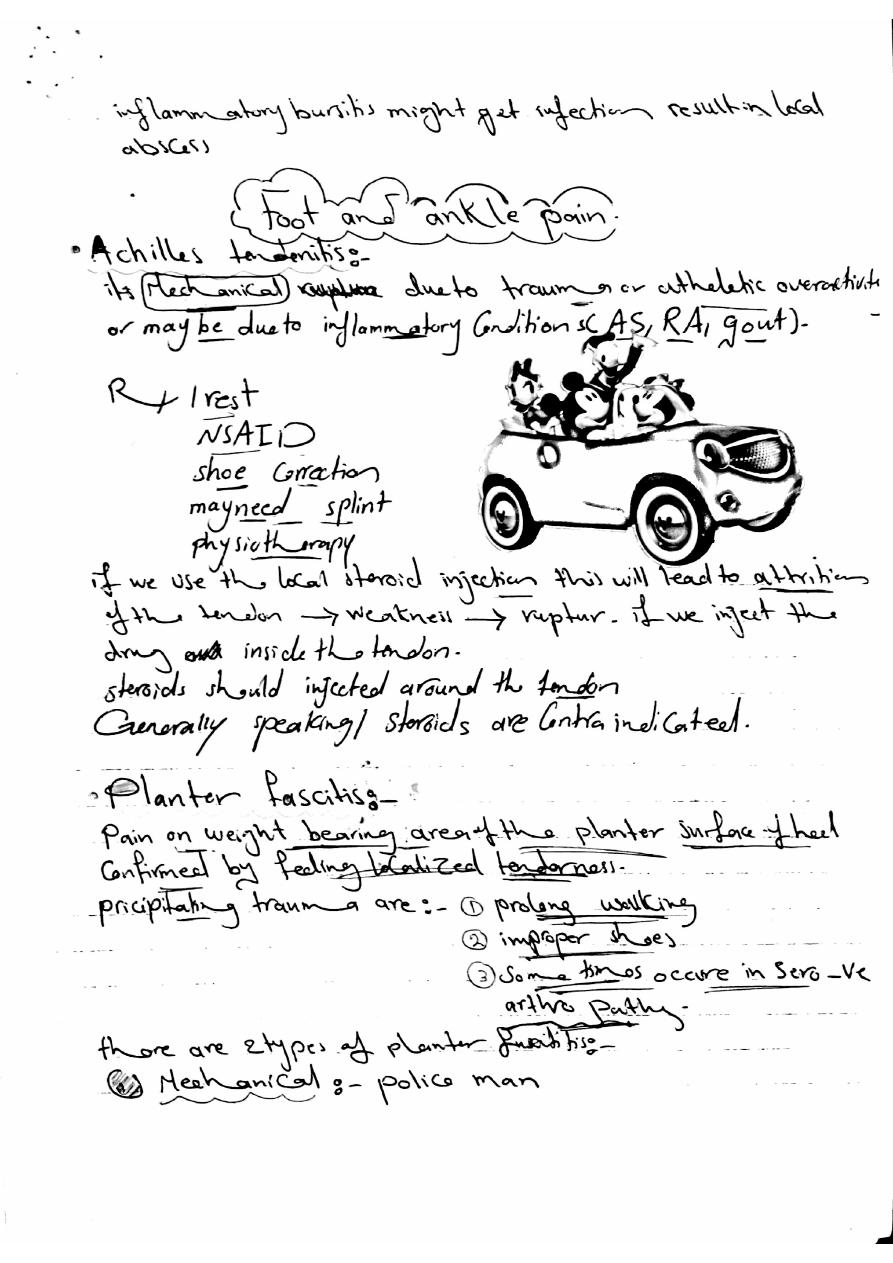 inflammatory bursitis might get infection result in local
abscess
Foot and ankle pain.
• Achilles tendenitis:-
its Mechanical due to trauma or atheletic overactivite
or may be due to inflammatory Conditions (AS, RA, gout).
Rx / rest
NSAID
shoe Correction
may need splint
physiotherapy
if we use the local steroid injection this will lead to attrition
of the tendon → weakness → ruptur. if we inject the
drug inside the tendon.
steroids should injected around the tendon
Generally speaking / steroids are Contraindicated.
• Planter fascitis:-
Pain on weight bearing area of the planter surface of heel
Confirmed by feeling localized tenderness.
pricipitating trauma are:- ① prolong walking
② improper shoes
③ Some times occure in Sero -ve
arthro pathy.
there are 2 types of planter fascitis:-
Mechanical :- police man